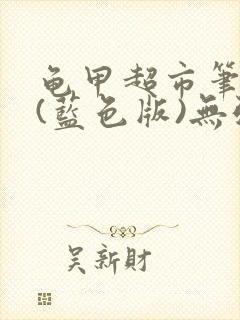 龟甲超市筆
(藍色版)無
吴新財